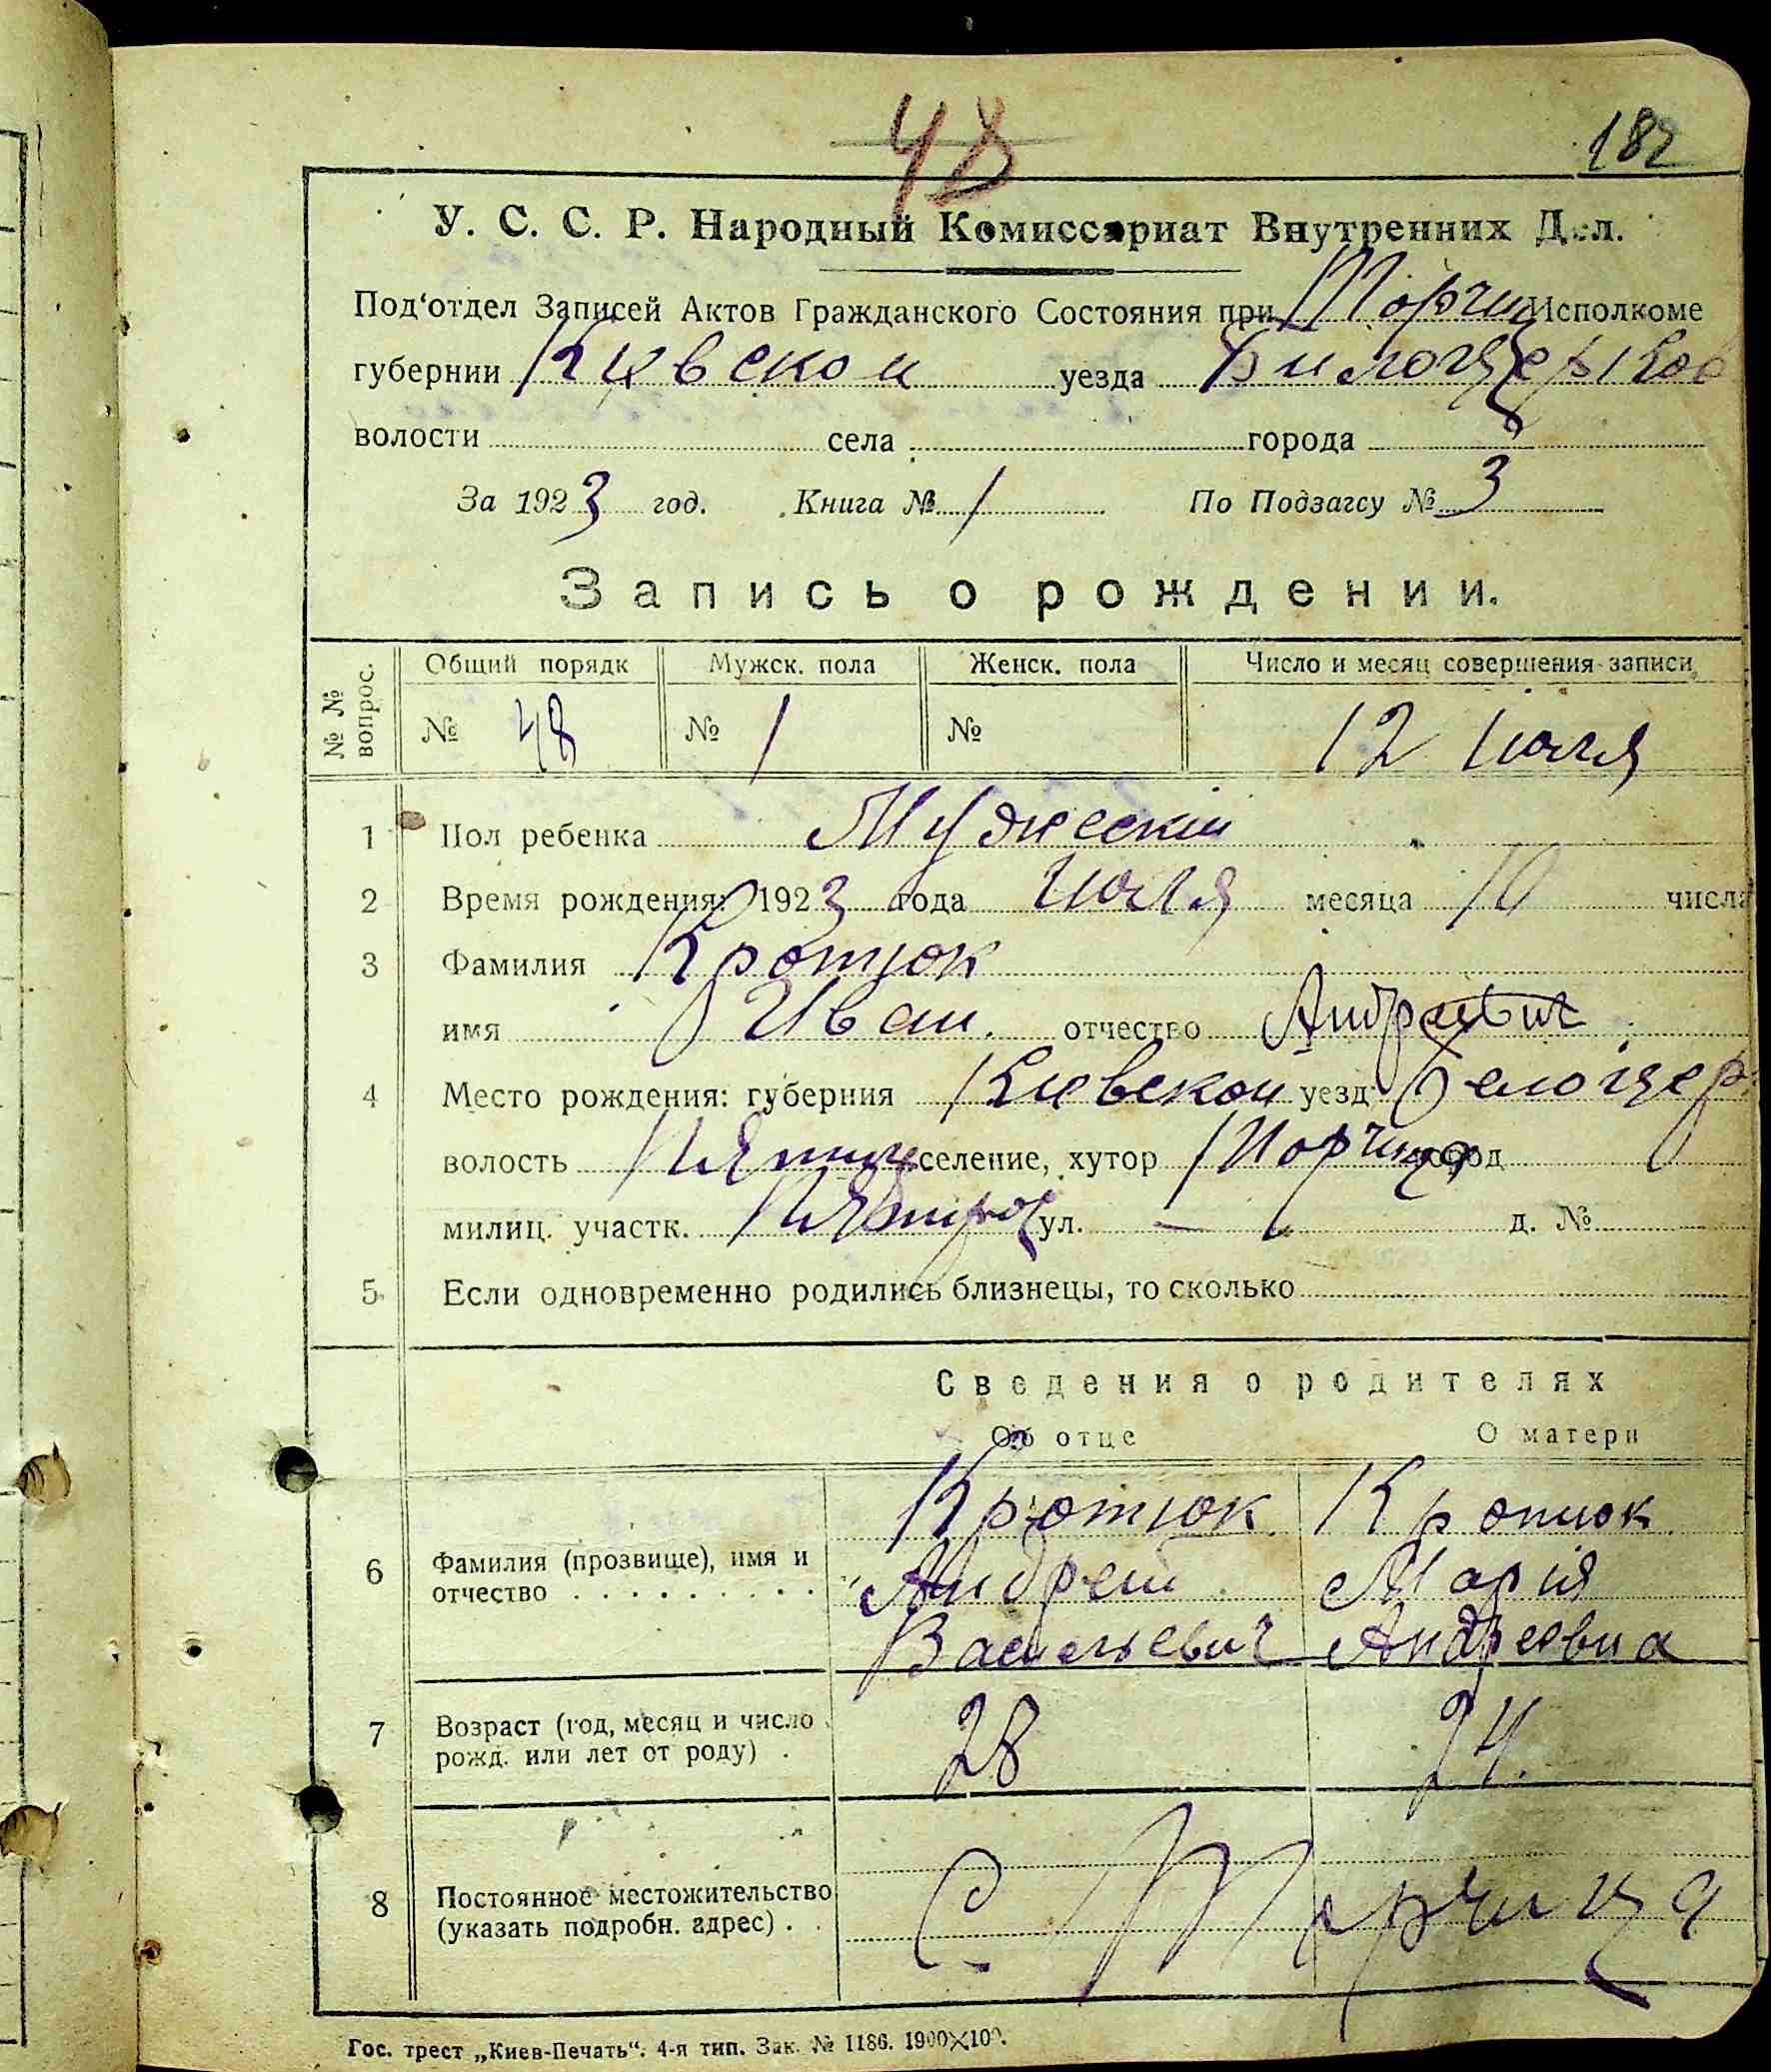 48
182
У. С. С. Р. Народный Комиссариат Внутренних Дел.
Под'отдел Записей Актов Гражданского Состояния при Торчиц Исполкоме
губернии Киевской уезда Билоцерков
волости села города
За 1923 год. Книга № 1 По Подзагсу № 3
Запись о рождении.
№ № вопрос. Общий порядк Мужск. пола Женск. пола Число и месяц совершения записи
№ 48 № 1 № 12 Июля
1 Пол ребенка Мужескій
2 Время рождения: 1923 года Июля месяца 10 числа
3 Фамилия Кротюк
имя Иван. отчество Андреевич
4 Место рождения: губерния Киевской уезд Белоцер
волость селение, хутор Торчица город
милиц. участк. ул. — д. №
5 Если одновременно родились близнецы, то сколько
Сведения о родителях
Об отце О матери
Кротюк Кротюк
6 Фамилия (прозвище), имя и Андрей Марія
отчество Васильевич Андреевна
7 Возраст (год, месяц и число 28 24.
рожд. или лет от роду)
8 Постоянное местожительство С. Торчица
(указать подробн. адрес)
Гос. трест „Киев-Печать“. 4-я тип. Зак. № 1186. 1900×100.